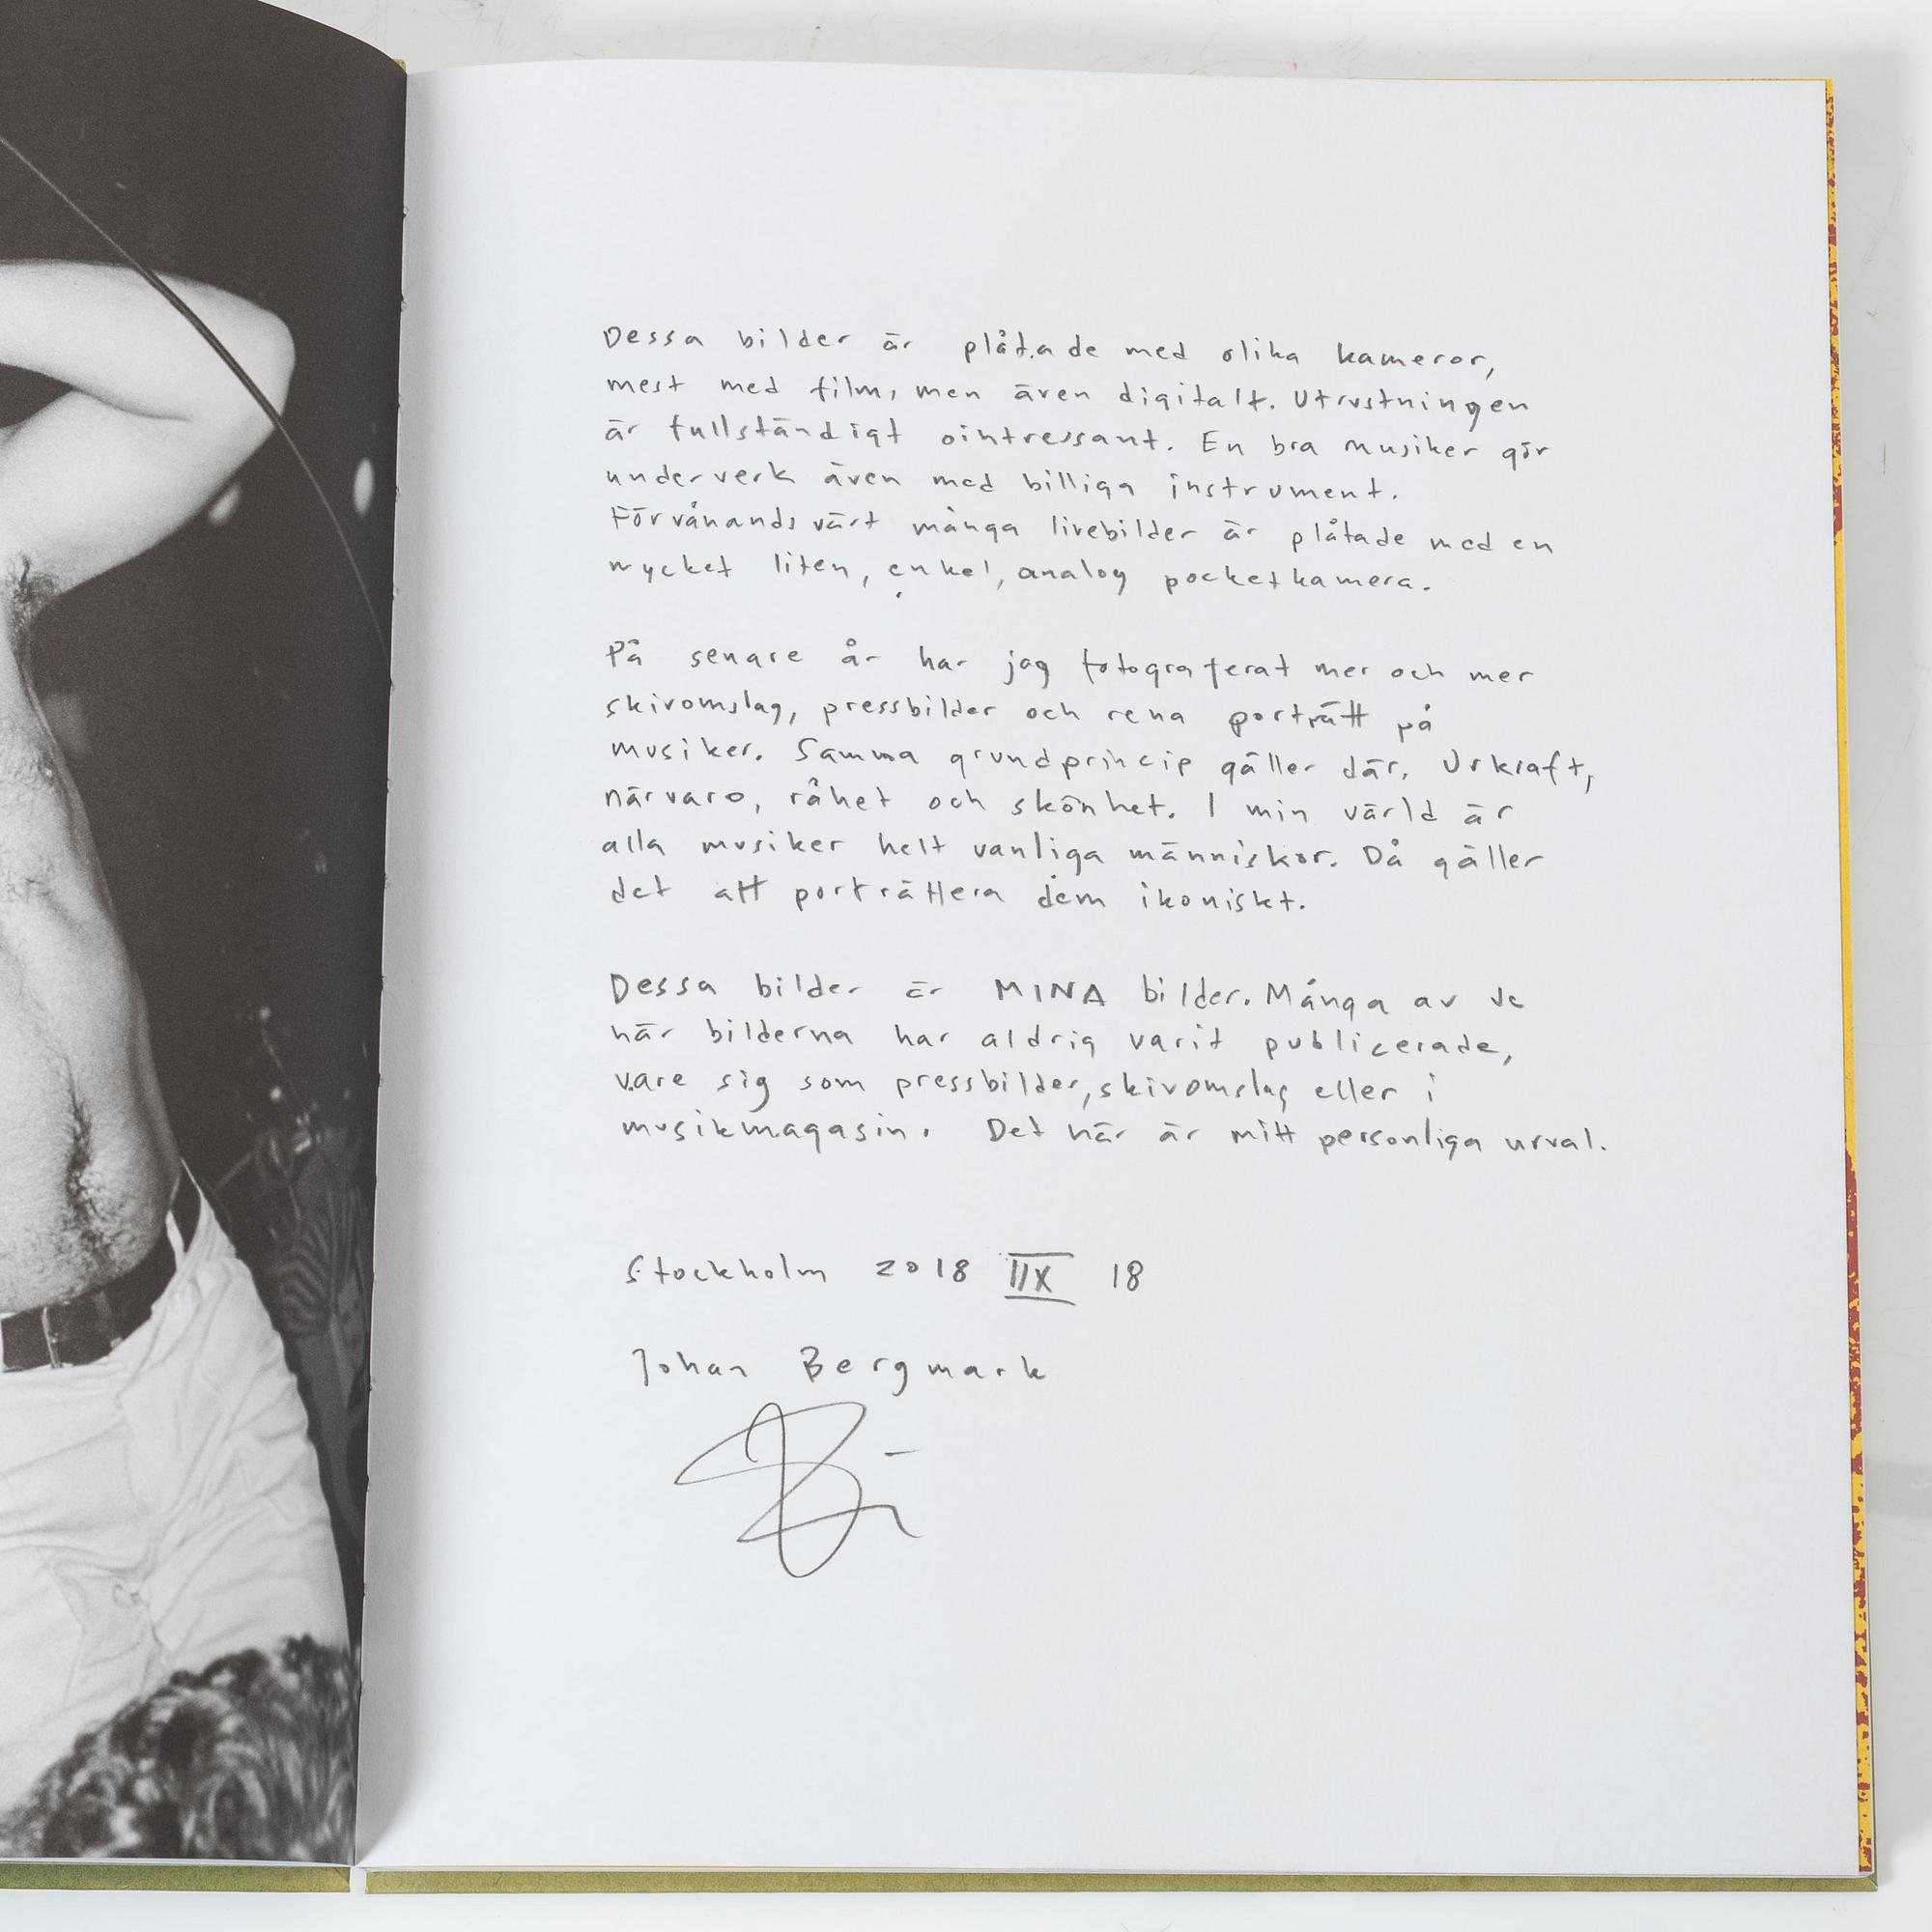 Dessa bilder är plåtade med olika kameror,
mest med film, men även digitalt. Utrustningen
är fullständigt ointressant. En bra musiker gör
underverk även med billiga instrument.
Förvånandsvärt många livebilder är plåtade med en
mycket liten, enkel, analog pocketkamera.
På senare år har jag fotograferat mer och mer
skivomslag, pressbilder och rena porträtt på
musiker. Samma grundprincip gäller där. Urkraft,
närvaro, råhet och skönhet. I min värld är
alla musiker helt vanliga människor. Då gäller
det att porträttera dem ikoniskt.
Dessa bilder är MINA bilder. Många av de
här bilderna har aldrig varit publicerade,
vare sig som pressbilder, skivomslag eller i
musikmagasin. Det här är mitt personliga urval.
Stockholm 2018 IIX 18
Johan Bergmark